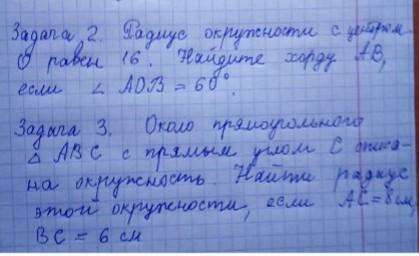 Задача 2. Радиус окружности с центром
О равен 16. Найдите хорду АВ,
если ∠ АОВ = 60°.
Задача 3. Около прямоугольного
△ АВС с прямым углом С описа-
на окружность. Найти радиус
этой окружности, если АС=8см
ВС = 6 см